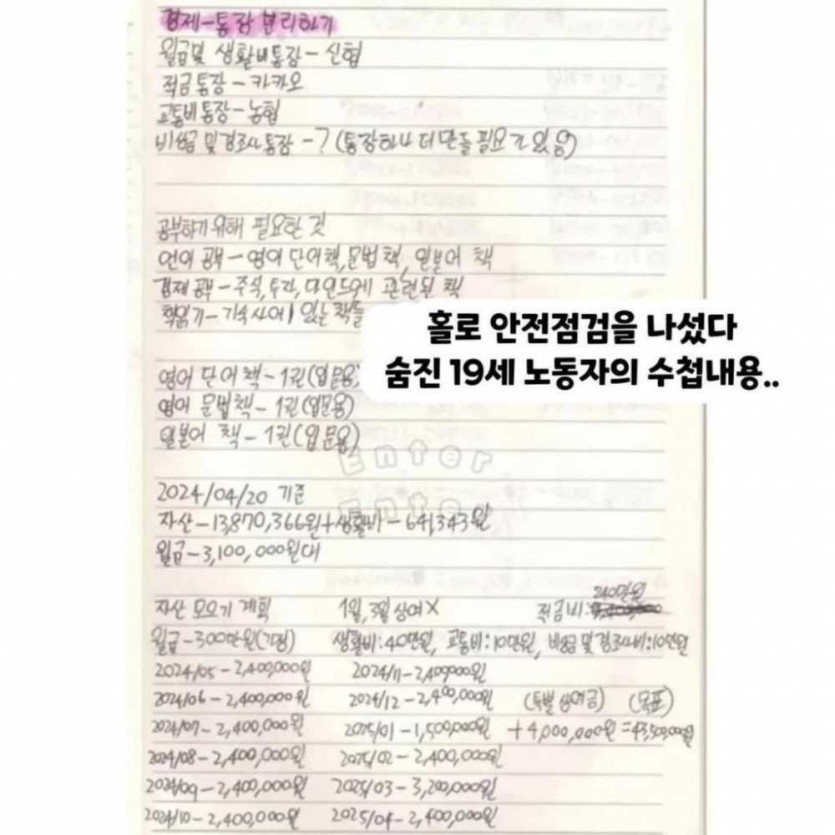 경제-통장 분리하기
월급및 생활비통장-신협
적금통장-카카오
교통비통장-농협
비상금 및 경조사통장-? (통장하나 더 만들 필요가 있음)
공부하기 위해 필요한 것
언어 공부-영어 단어책, 문법책, 일본어 책
경제 공부-주식, 투자, 마인드에 관련된 책
책읽기-기숙사에 있는 책들
홀로 안전점검을 나섰다
숨진 19세 노동자의 수첩내용..
영어 단어 책-1권(입문용)
영어 문법책-1권(입문용)
일본어 책-1권(입문용)
Enter
Enter
2024/04/20 기준
자산-13,870,366원+생활비-641,343원
월급-3,100,000원대
자산 모으기 계획 1월, 3월 상여X 적금비: 240만원
월급-300만원(가정) 생활비:40만원, 교통비:10만원, 비상금 및 경조사비:10만원
2024/05-2,400,000원 2024/11-2,400,000원
2024/06-2,400,000원 2024/12-2,400,000원 (특별 상여금) (목표)
2024/07-2,400,000원 2025/01-1,500,000원 +4,000,000원=43,500,000원
2024/08-2,400,000원 2025/02-2,400,000원
2024/09-2,400,000원 2025/03-3,200,000원
2024/10-2,400,000원 2025/04-2,400,000원